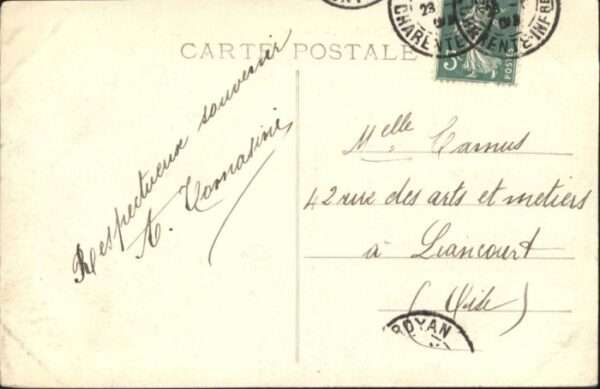 CARTE POSTALE
Respectueux souvenir
A. Tomasini
Melle Camus
42 rue des arts et metiers
à Liancourt
(Oise)
ROYAN
23
CHARENTE-INFRE
POSTES